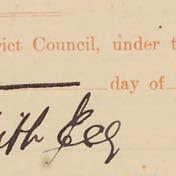 rict Council, under t
day of
ith Esq